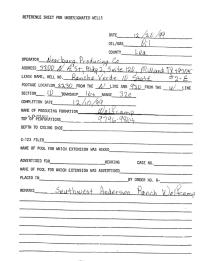 REFERENCE SHEET FOR UNDESIGNATED WELLS
DATE 12/21/99
OIL/GAS Oil
COUNTY Lea
OPERATOR Nearburg Producing Co
ADDRESS 3300 N A St, Bldg 2, Suite 120, Midland TX 79705
LEASE NAME, WELL NO. Rancho Verde 10 State
FOOTAGE LOCATION 2230 FROM THE N LINE AND 930 FROM THE W LINE
SECTION 10 TOWNSHIP 16s RANGE 32e
COMPLETION DATE 12/10/99
NAME OF PRODUCING FORMATION Wolfcamp
TOP OF PERFORATIONS 9796-9804
DEPTH TO CASING SHOE
C-123 FILED
NAME OF POOL FOR WHICH EXTENSION WAS ASKED:
ADVERTISED FOR HEARING CASE NO.
NAME OF POOL FOR WHICH EXTENSION WAS ADVERTISED
PLACED IN BY ORDER NO. R-
REMARKS Southwest Anderson Ranch Wolfcamp